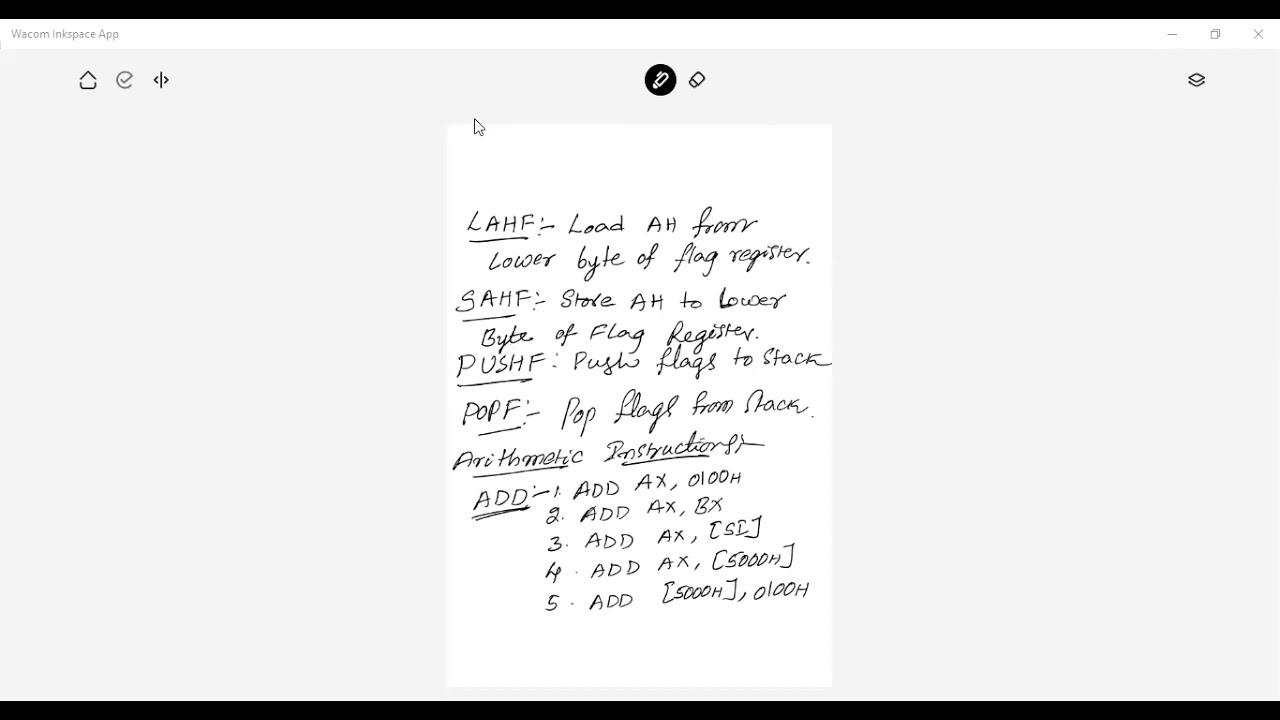 Wacom Inkspace App
LAHF:- Load AH from
Lower byte of flag register.
SAHF:- Store AH to Lower
Byte of Flag Register.
PUSHF: Push flags to Stack
POPF:- Pop flags from Stack.
Arithmetic Instructions:-
ADD:- 1. ADD AX, 0100H
2. ADD AX, BX
3. ADD AX, [SI]
4. ADD AX, [5000H]
5. ADD [5000H], 0100H